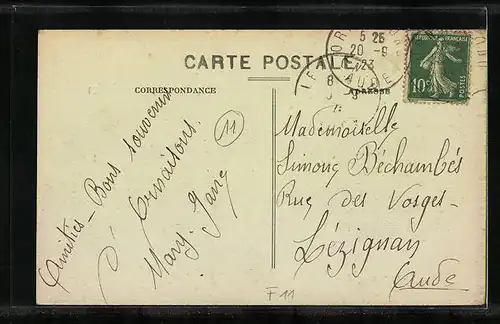 CARTE POSTALE
CORRESPONDANCE
ADRESSE
5 25
20 -9
23
AUDE
RÉPUBLIQUE FRANÇAISE
10c
POSTES
11
Amitiés - Bons souvenirs
d' Ornaisons.
Mary. Jane
Mademoiselle
Simone Béchambés
Rue des Vosges-
Lézignan
Aude
F 11